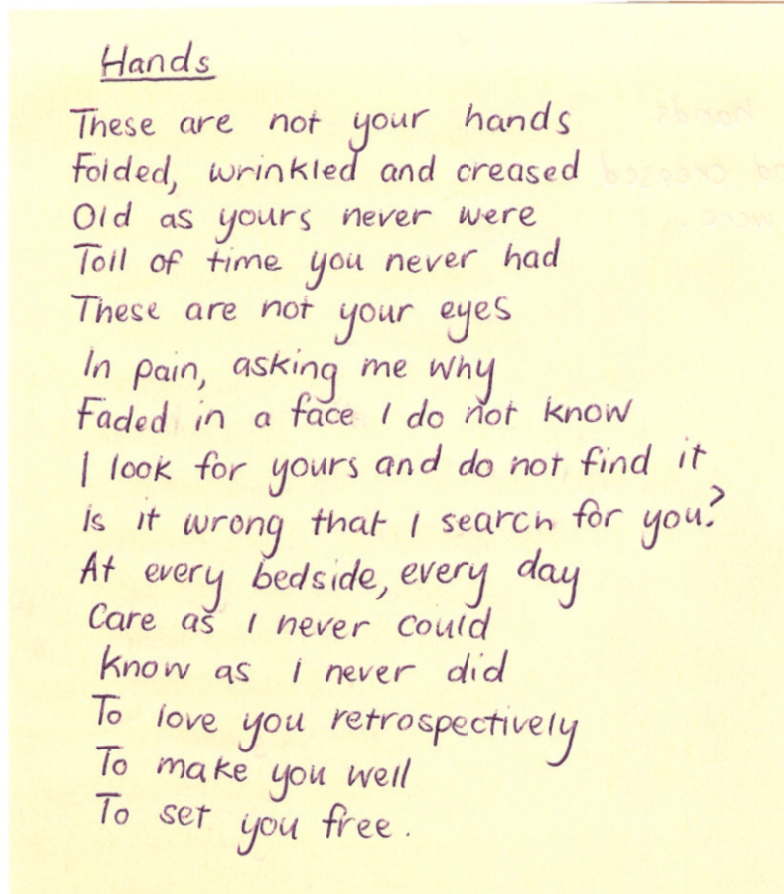 Hands
These are not your hands
Folded, wrinkled and creased
Old as yours never were
Toll of time you never had
These are not your eyes
In pain, asking me why
Faded in a face I do not know
I look for yours and do not find it
Is it wrong that I search for you?
At every bedside, every day
Care as I never could
Know as I never did
To love you retrospectively
To make you well
To set you free.